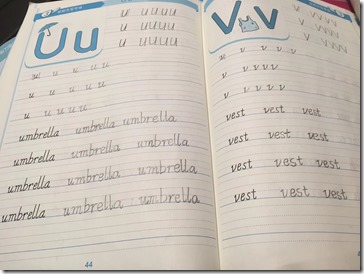 Uu
u u u u
u u u u u
u u u u u
u u u u
u u u u
umbrella umbrella umbrella
umbrella umbrella umbrella
umbrella umbrella umbrella
umbrella umbrella umbrella
44
Vv
v v v v v
v v v v v
v v v v v
vest vest vest
vest vest vest
vest vest vest
vest vest vest